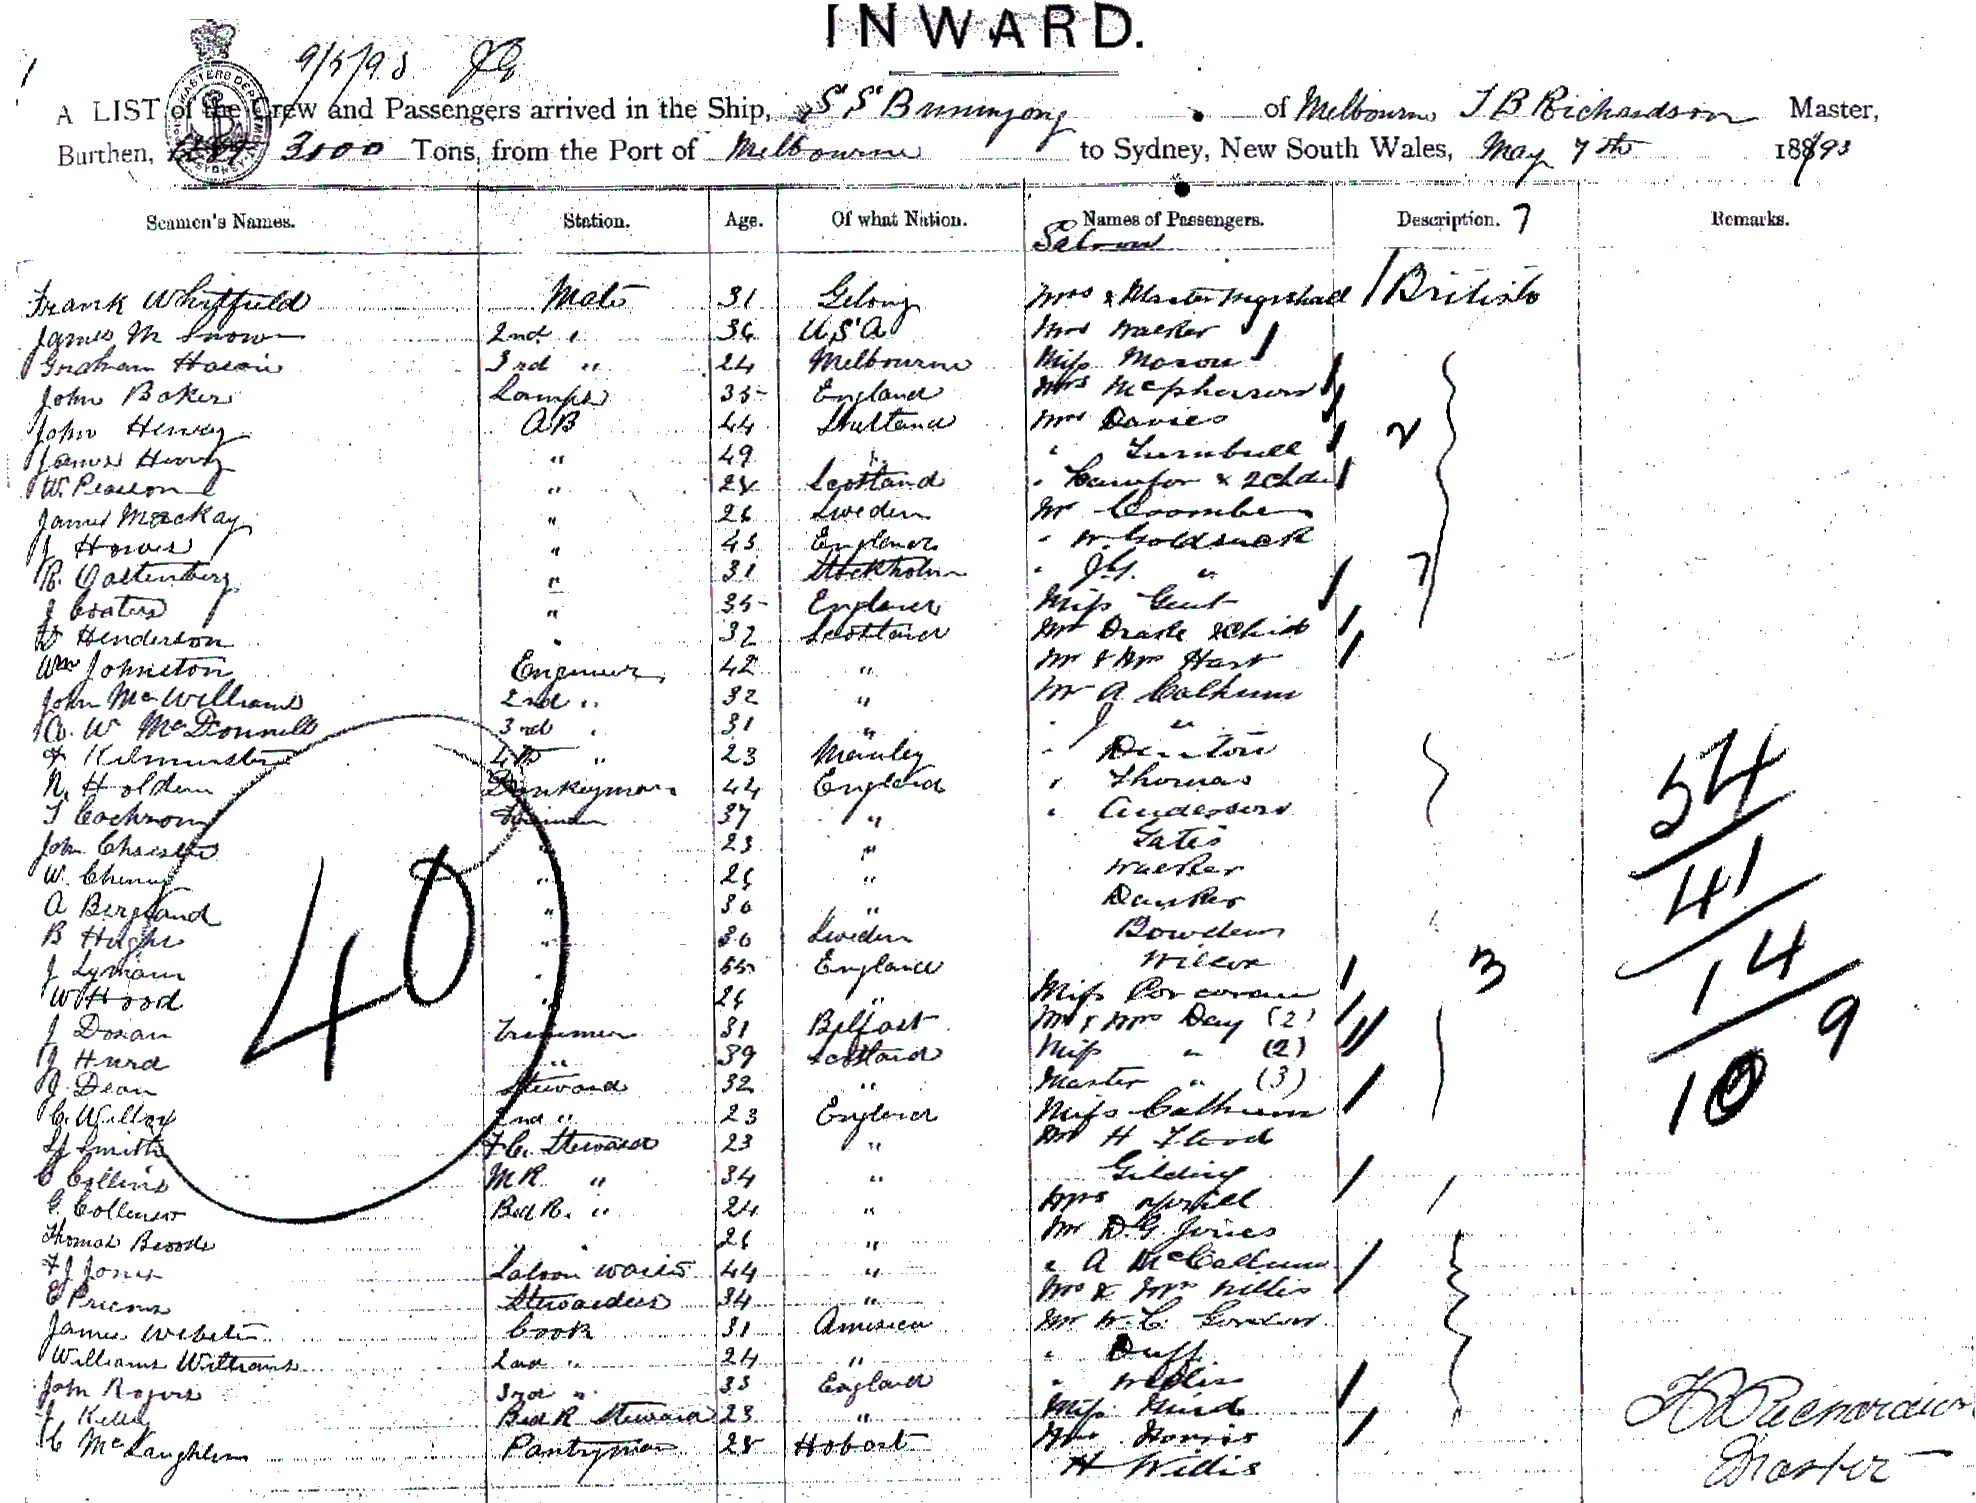 INWARD.
1 9/5/93
A LIST of the Crew and Passengers arrived in the Ship, SS Buninyong of Melbourne T B Richardson Master,
Burthen, 3000 Tons, from the Port of Melbourne to Sydney, New South Wales, May 7th 1893
Seamen's Names. Station. Age. Of what Nation. Names of Passengers. Description. 7 Remarks.
Saloon
Frank Whitfield Mate 31 Gelong Mrs & Master Marshall British
James M Snow 2nd " 36 USA Mrs Walker
Graham 3rd " 24 Melbourne Miss Mason
John Baker Lamps 35 England Mrs McPherson
John Henry AB 44 Shetland Mrs Davies
James Henry " 49 " " Turnbull 2
W. Pearson " 28 Scotland " & 2 Chdn
James Mackay " 26 Sweden Mr Coombe
J Howes " 45 England " W. Goldsack
R. Gastenberg " 31 Stockholm " J.G. " 7
J Coates " 35 England Miss Gent
D Henderson " 32 Scotland Mr Drake & Child
Wm Johnston Engineer 42 " Mr & Mrs Hart
John McWilliams 2nd " 32 " Mr A Calhoun
A. W McDonnell 3rd " 31 " " J "
F Kilminster 4th " 23 Manley " Denton
N. Holden Donkeyman 44 England " Thomas
T Cochrane Fireman 37 " " Anderson
John Christie " 23 " Yates
W. Cheney " 26 " Walker
A Bergland " 30 "
B Hughes " 30 Sweden Bowden
J Lymain " 55 England Wilcox 3
W Hood " 26 " Miss Corcoran
J Doran Trimmer 31 Belfast Mr & Mrs Day (2)
J Hurd " 39 Scotland Miss " (2)
J. Dean Steward 32 " Master " (3)
C. Willox 2nd " 23 England Miss Calhoun
Smith F.C. Steward 23 " Mr H Flood
C Collins M R " 34 " Gilding
G. Collinson Bed R. " 24 " Mrs
Thomas Brooks " " 26 " Mr D.G. Jones
F J Jones Saloon Waiter 44 " " A McCallum
E Stewardess 34 " Mr & Mrs Willis
James Webster Cook 31 America Mr W. C. Gordon
Williams Williams 2nd " 24 " " Duff
John Rogers 3rd " 33 England " Willis
J Kelly Bed R Steward 23 " Miss Hurd
C McLaughlin Pantryman 28 Hobart Mrs Harris
H Willis
40
54
41
14
9
10
T B Richardson
Master